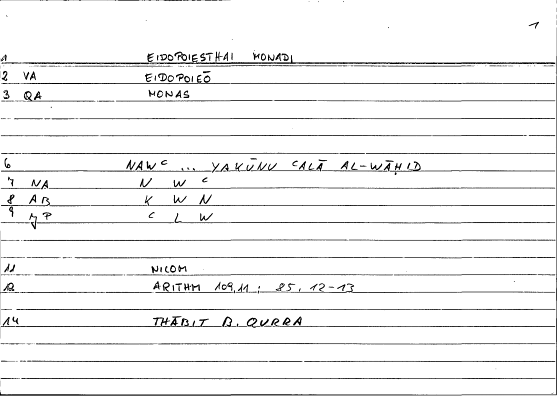 1
1 EIDOPOIESTHAI MONADI
2 VA EIDOPOIEŌ
3 QA MONAS
6 NAWᶜ ... YAKŪNU ᶜALĀ AL-WĀḤID
7 NA N W ᶜ
8 AB K W N
9 ᶜ L W
11 NICOM
12 ARITHM 109,11 ; 85, 12-13
14 THĀBIT B. QURRA